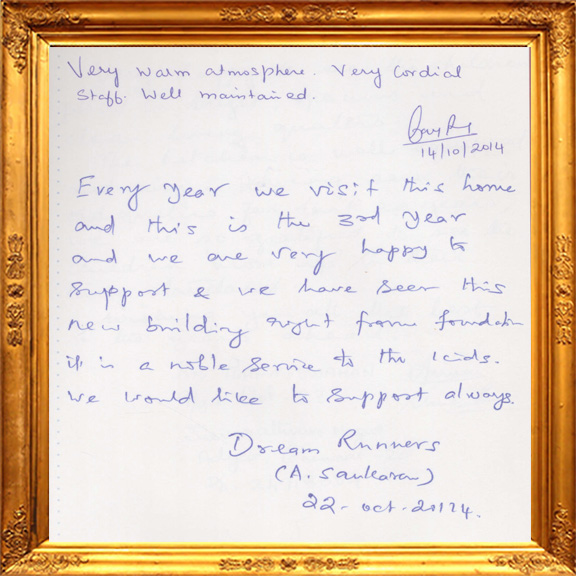 Very warm atmosphere. Very Cordial
Staff. Well maintained.
14/10/2014
Every year we visit this home
and this is the 3rd year
and we are very happy to
support & we have seen this
new building right from foundation
it is a noble service to the kids.
We would like to support always.
Dream Runners
(A. Sankaran)
22-oct-20124.